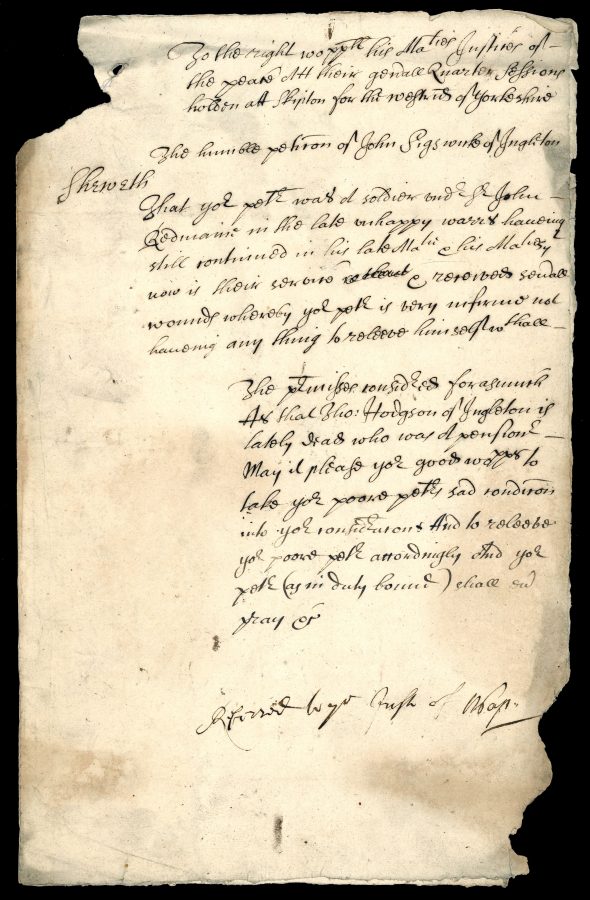 To the right wo:pp:ll his Ma:ties Justices of
the peace Att their gen'all Quarter Sessions
holden att Skipton for the westrid' of Yorkeshire
The humble peticon of John Sigswicke of Ingleton
Sheweth
That yo:r pet:r was A soldier und:r S:r John
Redmaine in the late unhappy warrs haveing
still continued in his late Ma:tie & his Ma:tie y:t
now is their service & received sev'all
wounds whereby yo:r pet:r is very infirme not
haveing any thing to releeve himselfe w:thall
The p:rmisses consid:red forasmuch
As that Tho: Hodgson of Ingleton is
lately dead who was A pension:r
May it please yo:r good wo:pps to
take yo:r poore pet:rs sad condicon
into yo:r consid:racons And to releeve
yo:r poore pet:r accordingly And yo:r
pet:r (as in duty bound) shall ev'
pray &c
Referred to ye Just of Wap: